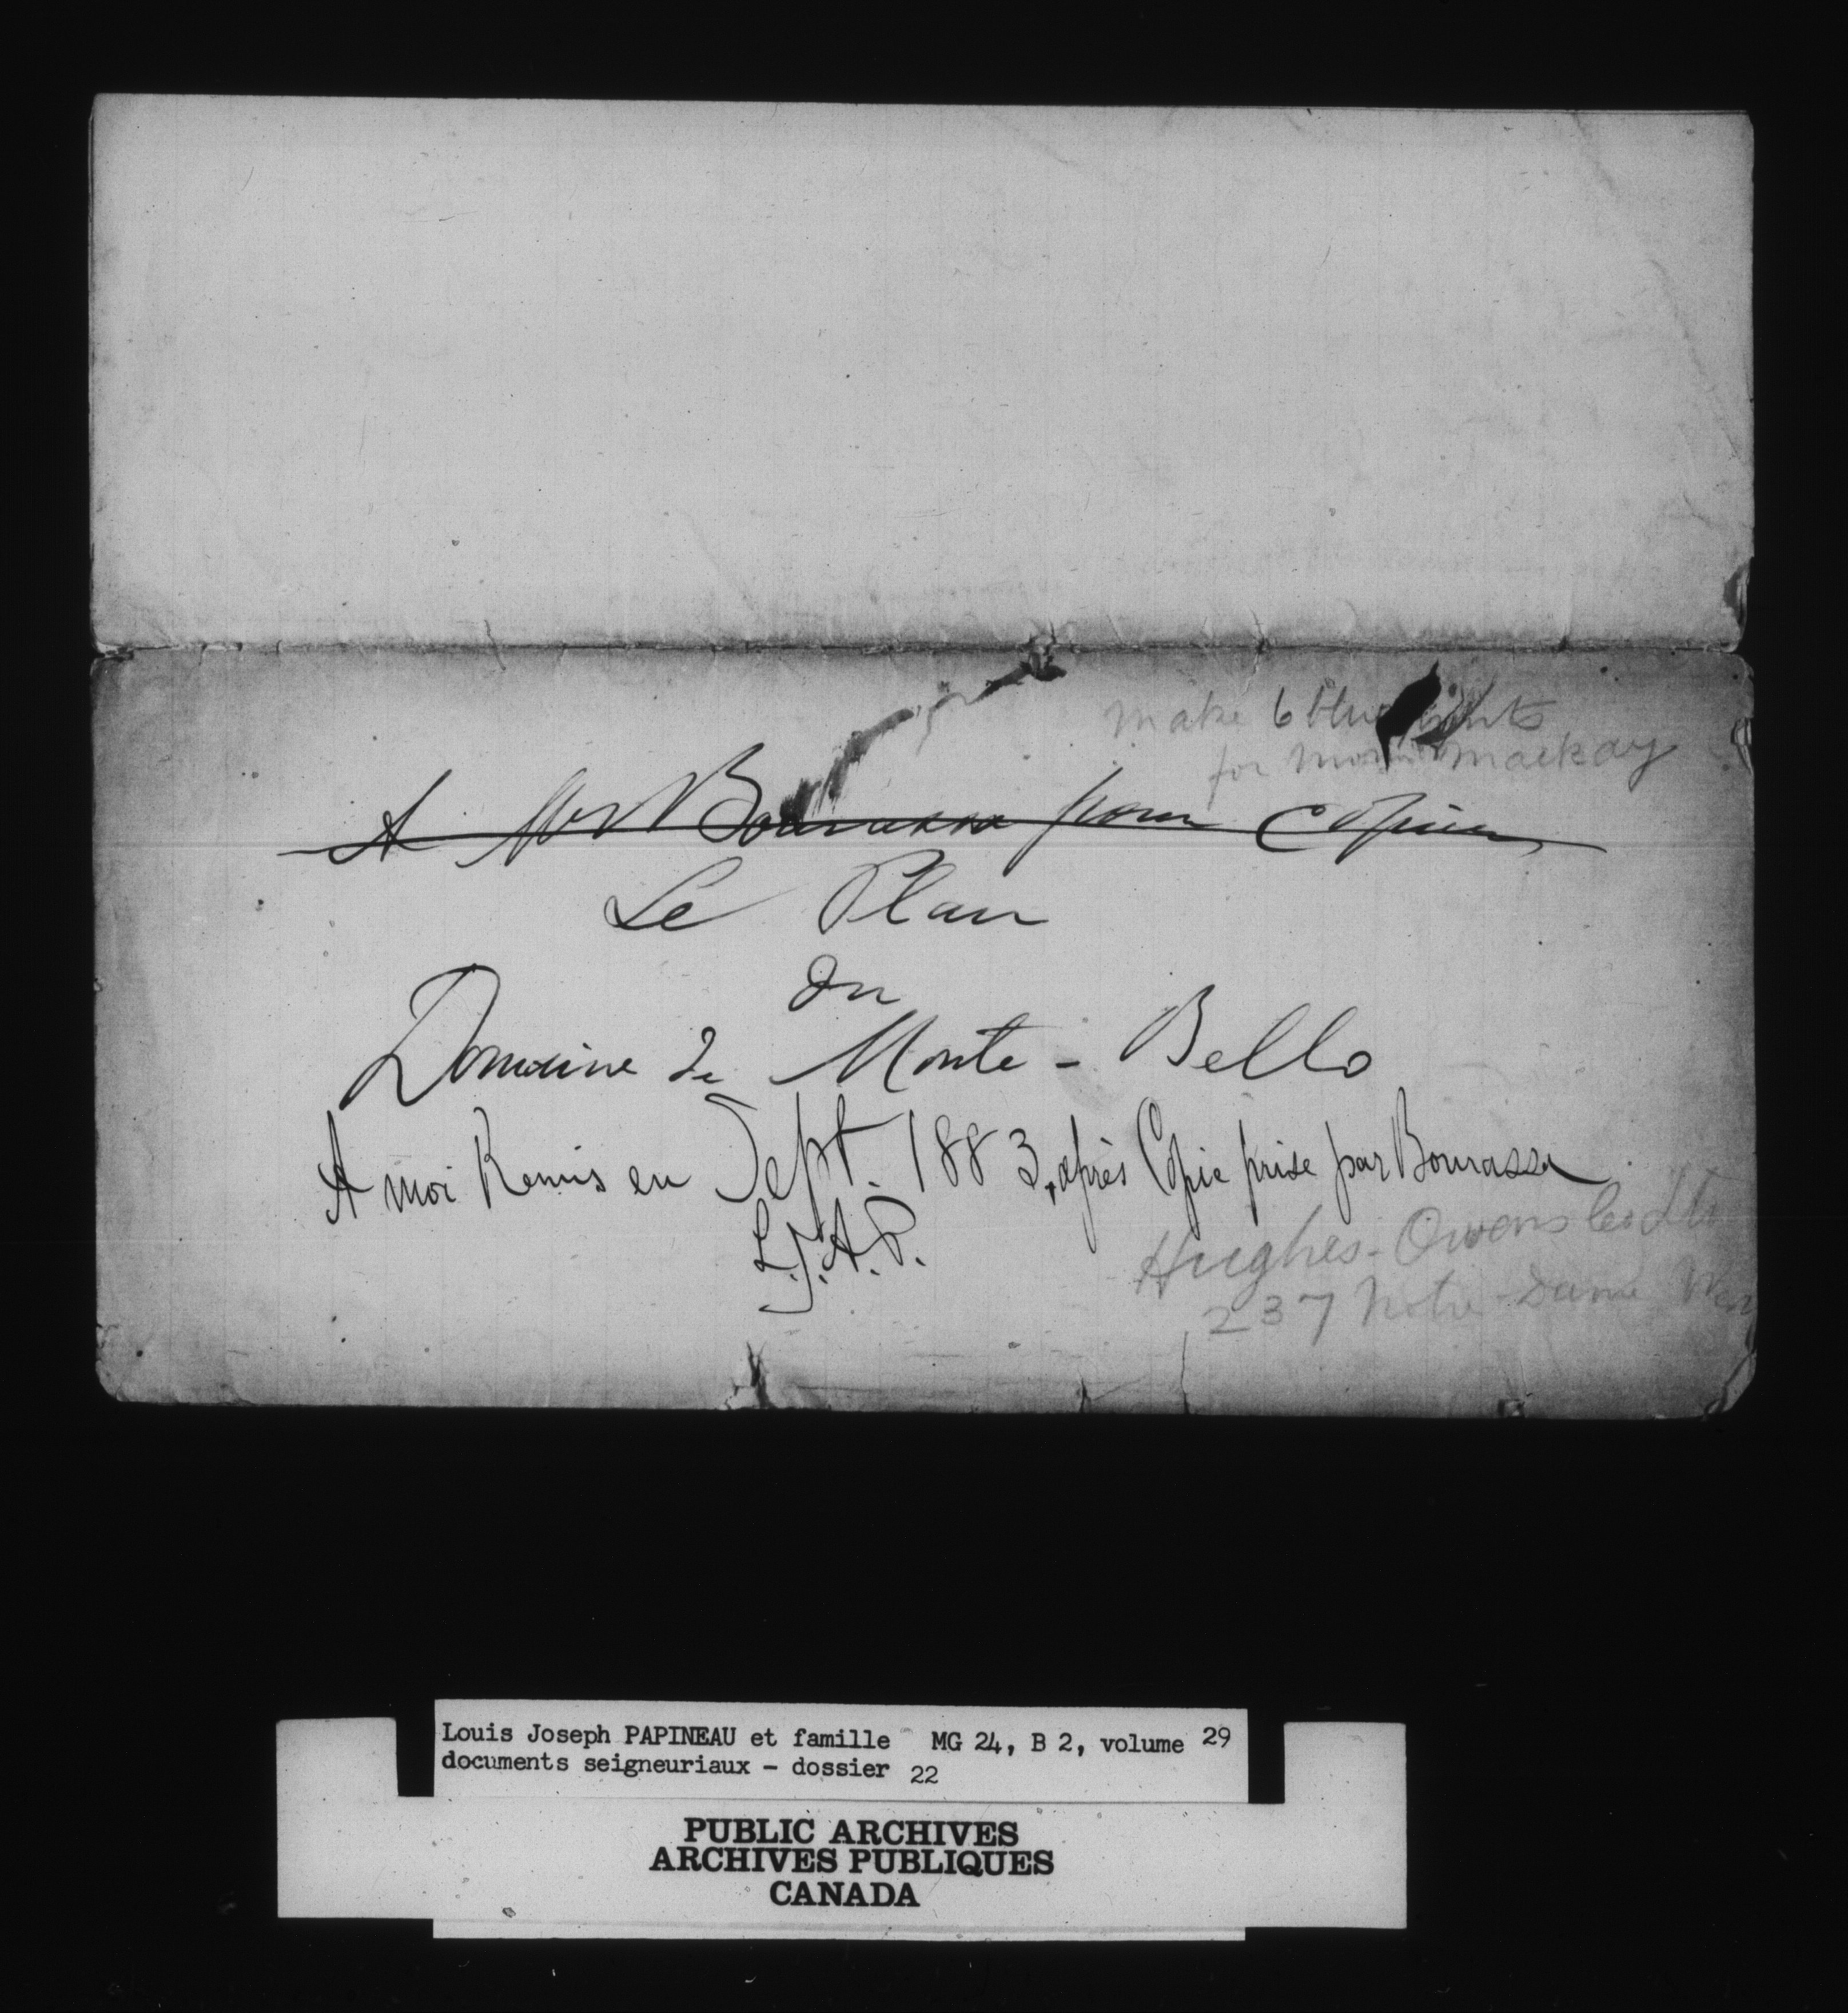 make 6 blue prints
for mackay
A Mr Bourassa pour Copier
Le Plan
du
Domaine de Monte-Bello
A moi Remis en Sept. 1883, après Copie prise par Bourassa
L.J.A.P.
Hughes-Owens Co Ltd
237 Notre-Dame West
Louis Joseph PAPINEAU et famille MG 24, B 2, volume 29
documents seigneuriaux - dossier 22
PUBLIC ARCHIVES
ARCHIVES PUBLIQUES
CANADA